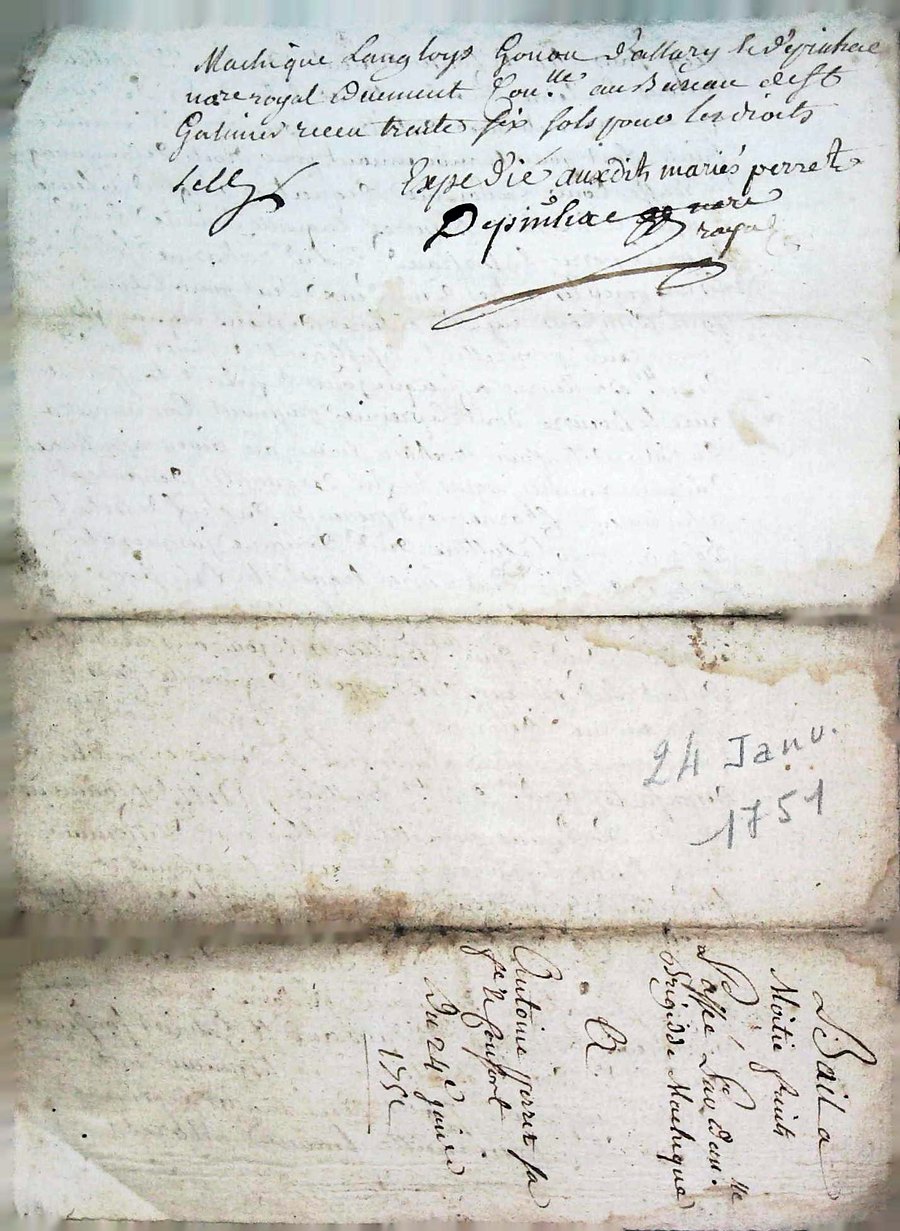 Machique Langloys Gonon d'allary & d'Epinhac
nore royal duement Con.lle au Bureau de St
Galmier reçu trente six sols pour les droits
Expedié auxdits mariés perret
Depinhac nore
royal
24 Janv.
1751
Bail a
Moitié fruits
Passé par dem.lle
Brigidde Machique
A
Antoine perret sa
fe & Consort
Du 24e janvier